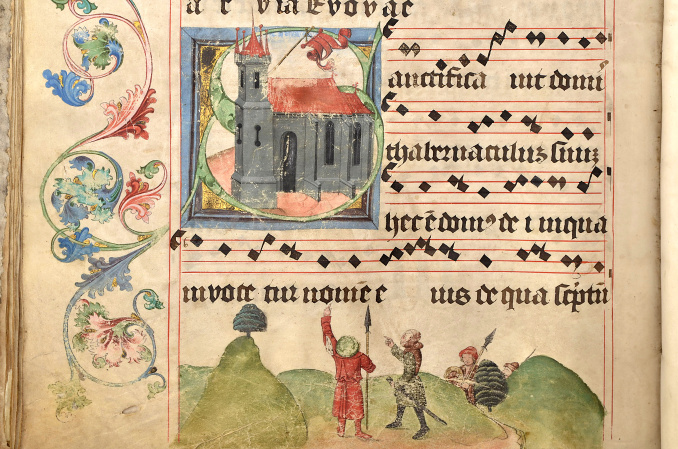 a e via Evovae
Sanctifica vit domi
thabernaculuz suuz
hec ē domꝰ de i in qua
invoce tur nomē e ius de qua scptū